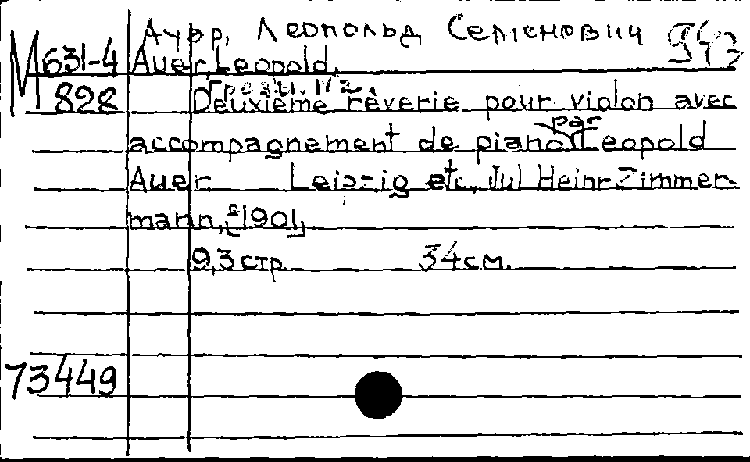 Ауэр, Леопольд Семенович 943
М 631-4 Auer, Leopold.
828 Deuxième rêverie pour violon avec
par
accompagnement de piano Leopold
Auer Leipzig etc., Jul Heinr Zimmer-
mann, [1901]
9,3 стр 34 см.
73449